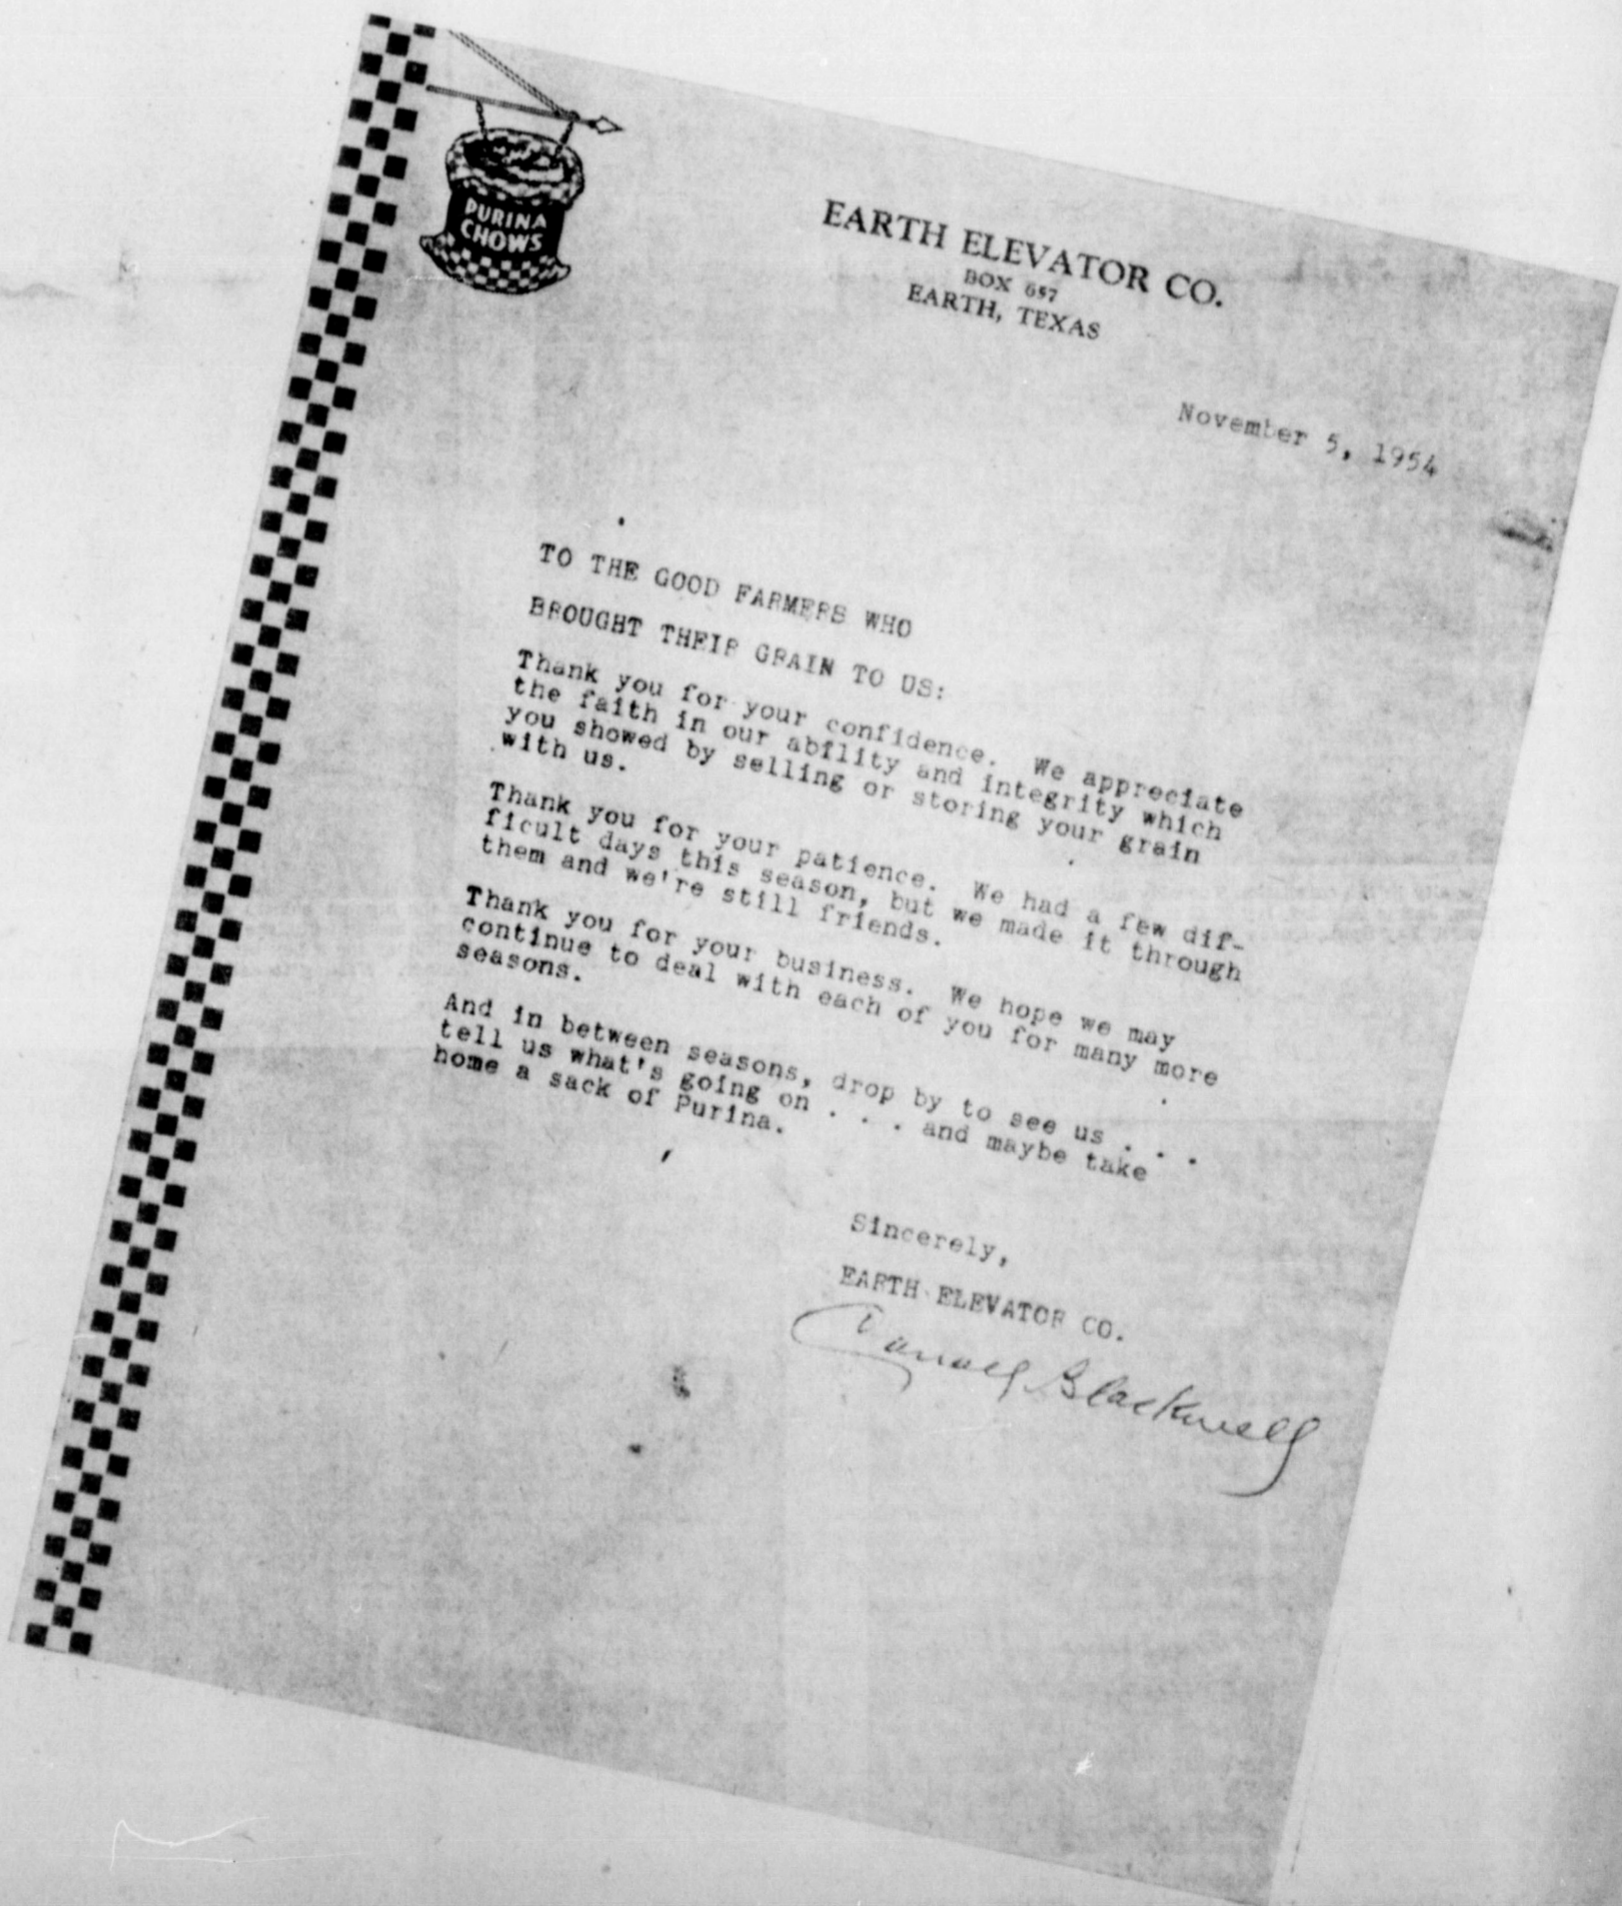 PURINA
CHOWS
EARTH ELEVATOR CO.
BOX 657
EARTH, TEXAS
November 5, 1954
TO THE GOOD FARMERS WHO
BROUGHT THEIR GRAIN TO US:
Thank you for your confidence. We appreciate
the faith in our ability and integrity which
you showed by selling or storing your grain
with us.
Thank you for your patience. We had a few dif-
ficult days this season, but we made it through
them and we're still friends.
Thank you for your business. We hope we may
continue to deal with each of you for many more
seasons.
And in between seasons, drop by to see us . . .
tell us what's going on . . . and maybe take
home a sack of Purina.
Sincerely,
EARTH ELEVATOR CO.
Blackwell